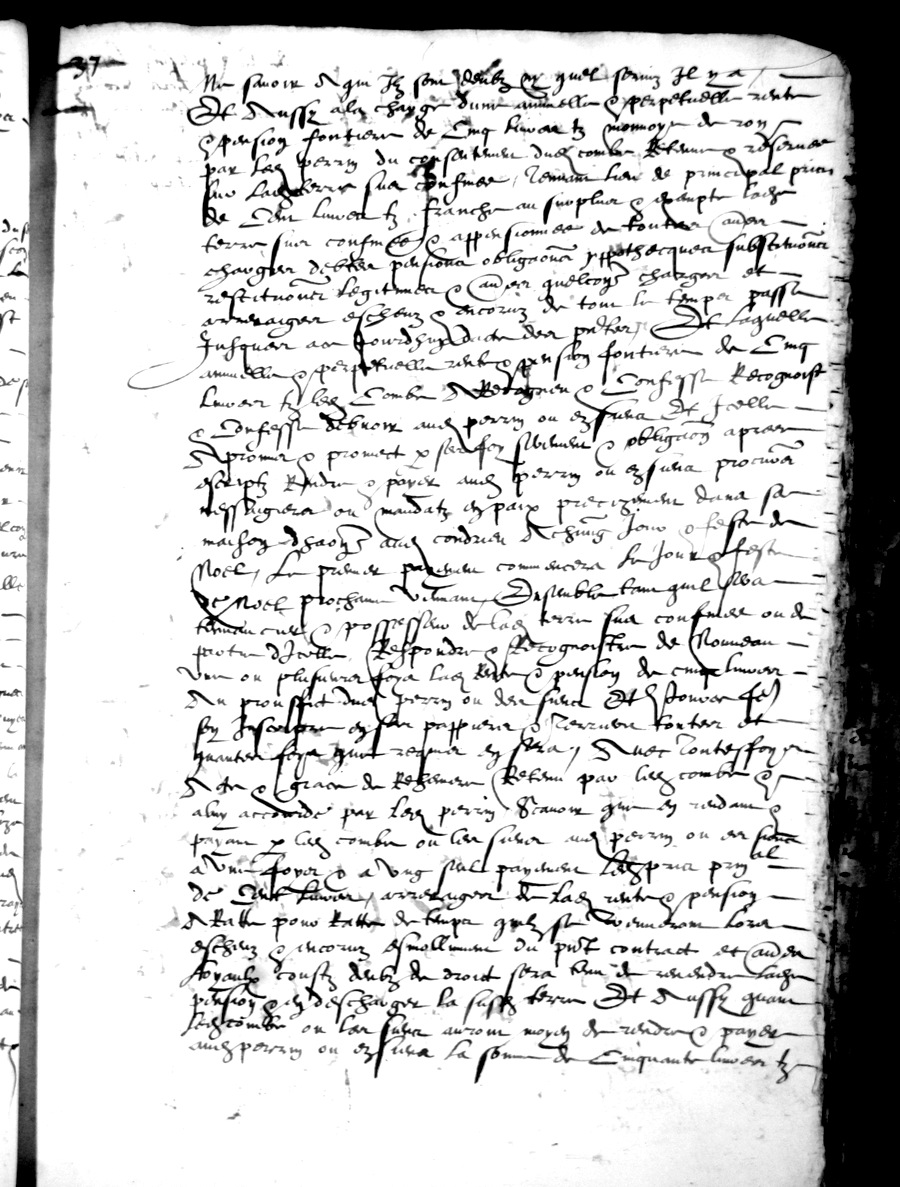 37
Ne savoir a qui Ilz sont deubz ny quel servis Il y a
Et Aussy a la charge dune annuelle & perpetuelle rente
& pension fonciere de Cinq livres tz monnoye de roy
par led perrin du consentement dud combe Retenue & reservee
sur lad terre sus confinee, Tenant lieu de principal pris
de Cent livres tz franche au surplus & exempte lade
terre sus confinee & appensionnee de toutes aultres
charges debtes pensions obligaons yppothecques substitutions
restitutions legitimes & aultres quelconqs charges et
arreraiges escheuz & encoruz de tout le temps passe
Jusques au Jourdhuy date des pntes, Et laquelle
annuelle & perpetuelle rente & pension fonciere de Cinq
livres tz led Combe A Recogneu & Confesse Recognoist
& Confesse debvoir aud perrin ou es siens Et Icelle
A promis & promect p ses foy serment & obligaon apres
escriptz Rendre & payer aud perrin ou es siens procureurs
messagiers ou mandatz en paix precizement dans sa
maison dhaons aud condrieu A chung Jour & feste de
Noel, Le premier payement commencera le Jour & feste
de Noel prochain venant, Ensemble tant quil sera
tenancier & possesseur de lad terre sus confinee ou de
partie dIcelle Respondre & Recognoistre de Nouveau
une ou plusieurs foys lad Rente & pension de cinq livres
Au prouffict dud perrin ou des siens Et
sen Inscripre en ses pappiers & Terriers toutes et
quantes foys que requis en sera, Avec toutesfoys
Acte & grace de Rehemere Retenu par led combe &
aluy accorde par led perrin Scavoir que en rendant &
payant p led combe ou les siens aud perrin ou es siens
a une foys & a ung seul payement led pris prinal
de Cent livres, arreraiges de lad rente & pension
A Ratte pour Ratte de temps quilz se trouveront lors
escheuz & encoruz esmollument du pnt contract et aultres
loyaulx coustz deubz de droict sera tenu de revendre lade
pension & en descharger la susd terre Et Aussy quant
led combe ou les siens auront moyen de rendre & payer
aud perrin ou es siens la somme de Cinquante livres tz